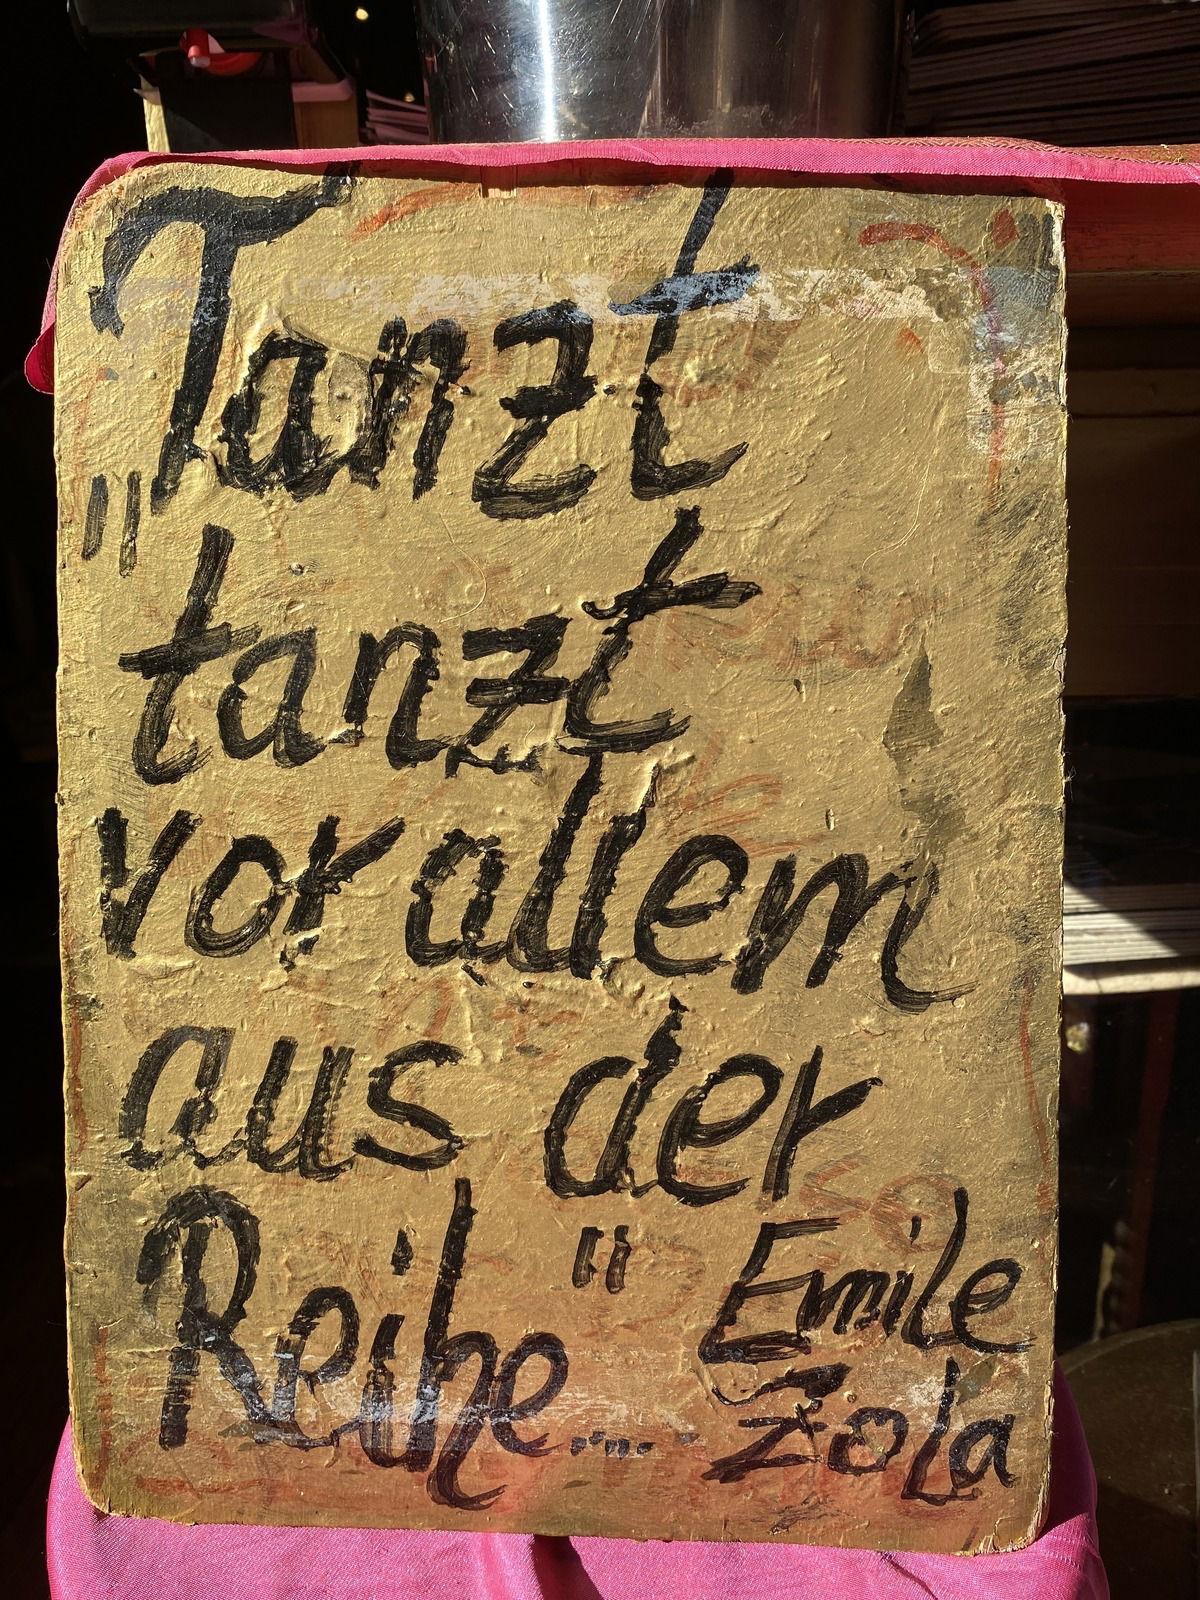 Tanzt
"tanzt
vor allem
aus der
Reihe..." Emile
Zola